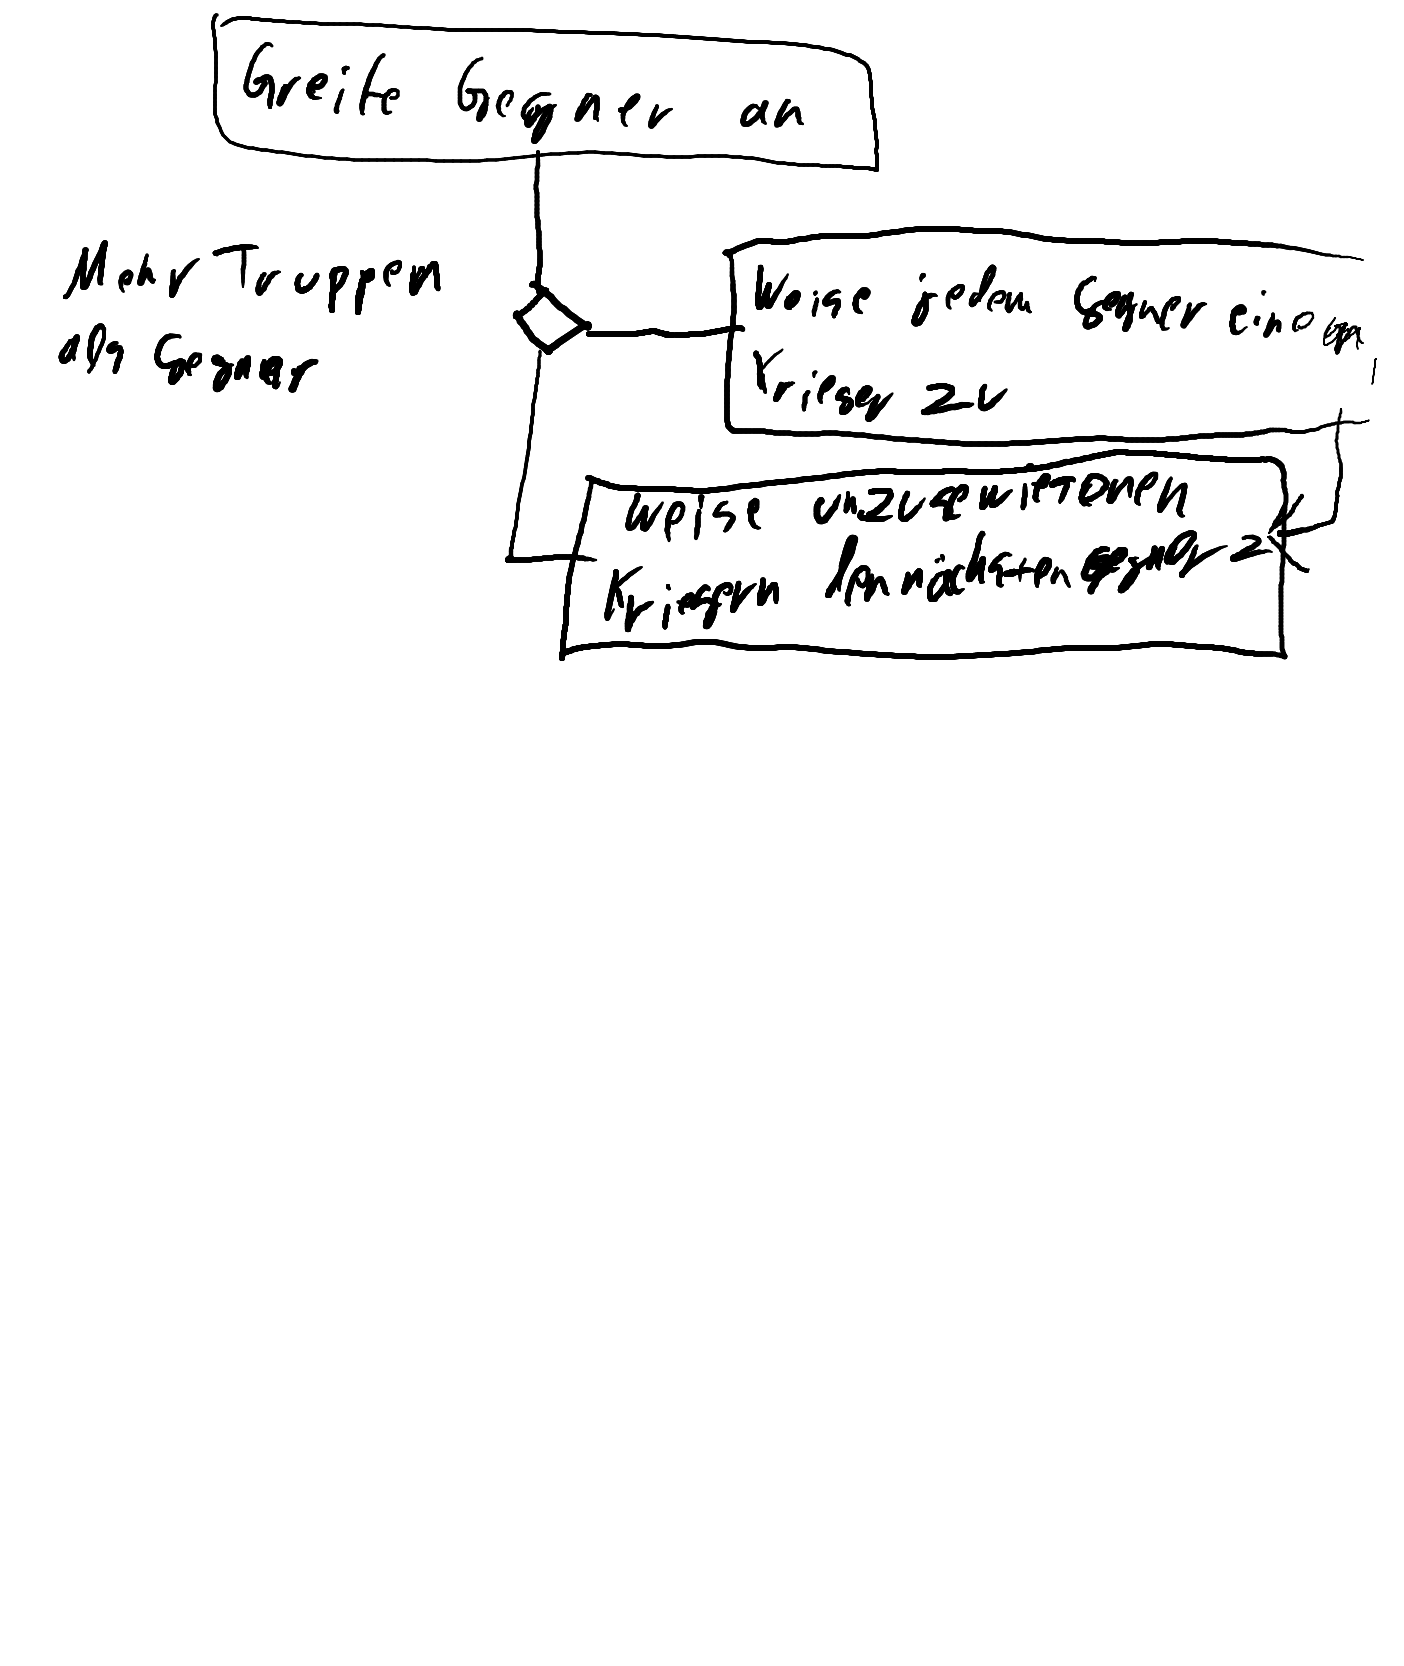 Greife Gegner an
Mehr Truppen
als Gegner
Weise jedem Gegner einem
Krieger zu
Weise unzugewiesenen
Kriegern den nächsten Gegner z